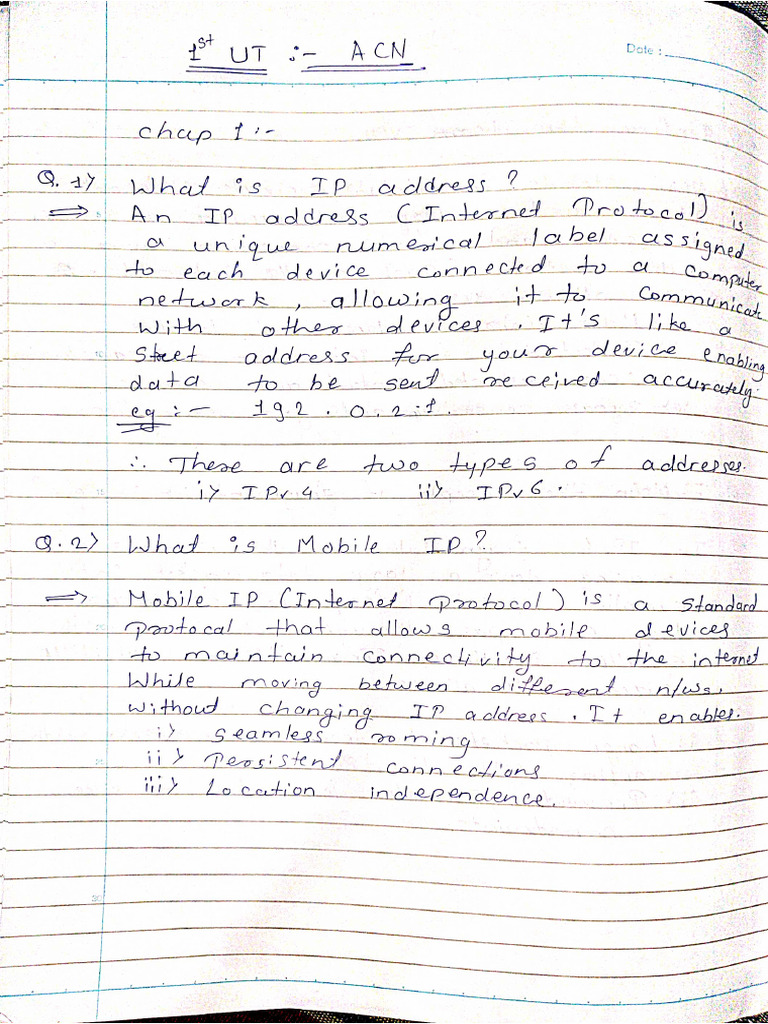 1st UT :- ACN
Date :
Chap 1 :-
Q. 1) What is IP address ?
⇒ An IP address (Internet Protocol) is
a unique numerical label assigned
to each device connected to a computer
network, allowing it to communicate
with other devices. It's like a
Street address for your device enabling
data to be sent received accurately.
eg :- 192.0.2.1.
∴ There are two types of addresses.
i) IPv4 ii) IPv6.
Q. 2) What is Mobile IP ?
⇒ Mobile IP (Internet protocol) is a standard
protocal that allows mobile devices
to maintain connectivity to the internet
While moving between different n/ws,
without changing IP address. It enables.
i) Seamless roming
ii) Persistent connections
iii) Location independence.